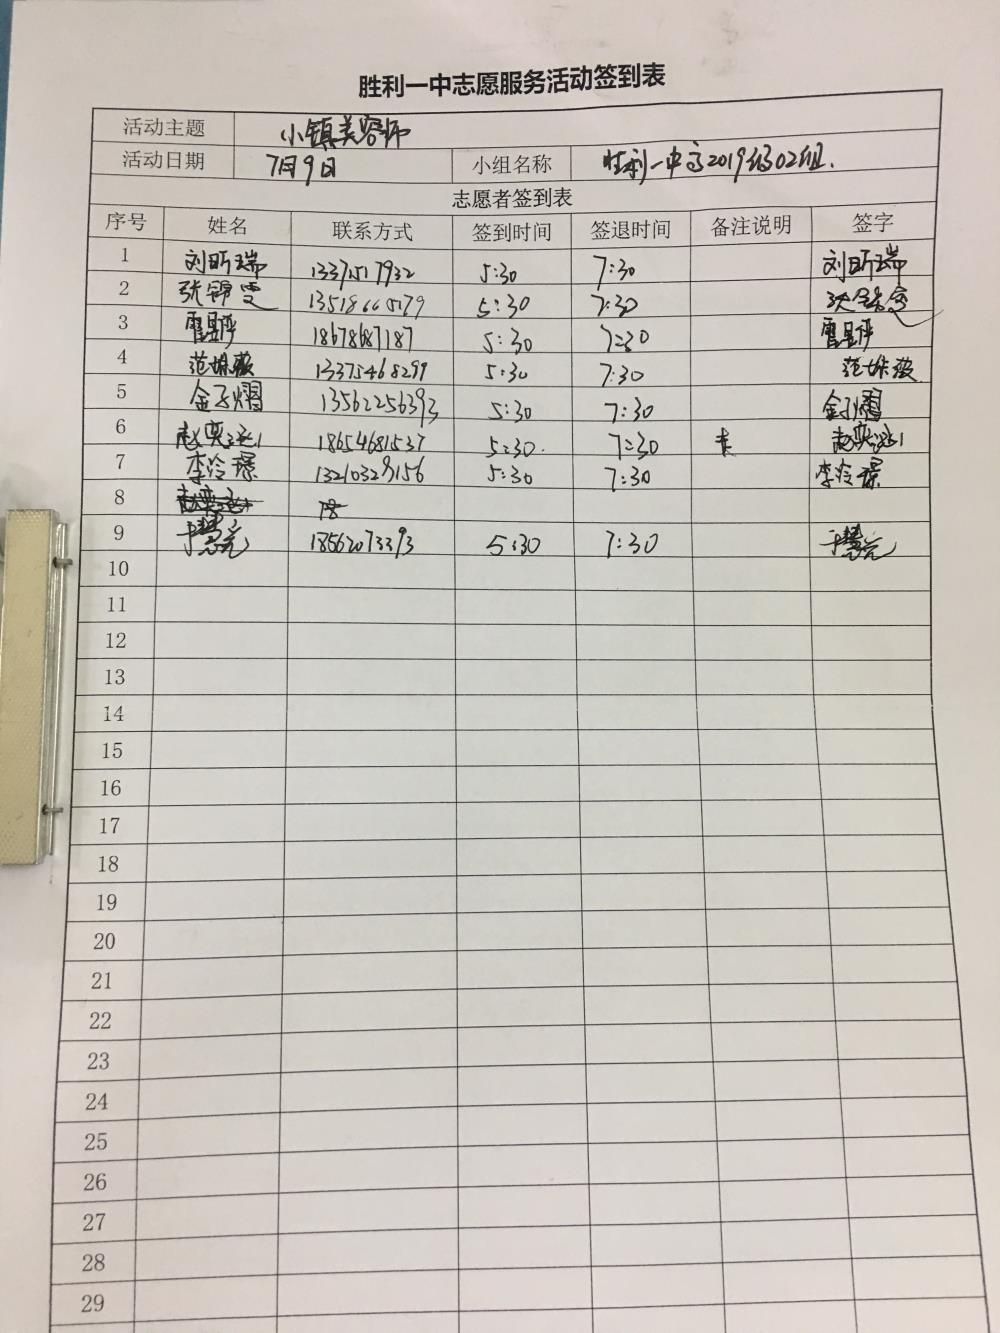 胜利一中志愿服务活动签到表
活动主题 小镇美容师
活动日期 7月9日 小组名称 胜利一中高2019级02组.
志愿者签到表
序号 姓名 联系方式 签到时间 签退时间 备注说明 签字
1 刘昕瑞 13371517932 5:30 7:30 刘昕瑞
2 张锦雯 13518665179 5:30 7:30 张锦雯
3 18678687187 5:30 7:30
4 范姝薇 13375468299 5:30 7:30 范姝薇
5 金子熠 13562256393 5:30 7:30 金子熠
6 赵奕 18654681537 5:30 7:30 赵奕
7 李泠璟 13210329156 5:30 7:30 李泠璟
8 18
9 于慧 18562073393 5:30 7:30 于慧
10
11
12
13
14
15
16
17
18
19
20
21
22
23
24
25
26
27
28
29